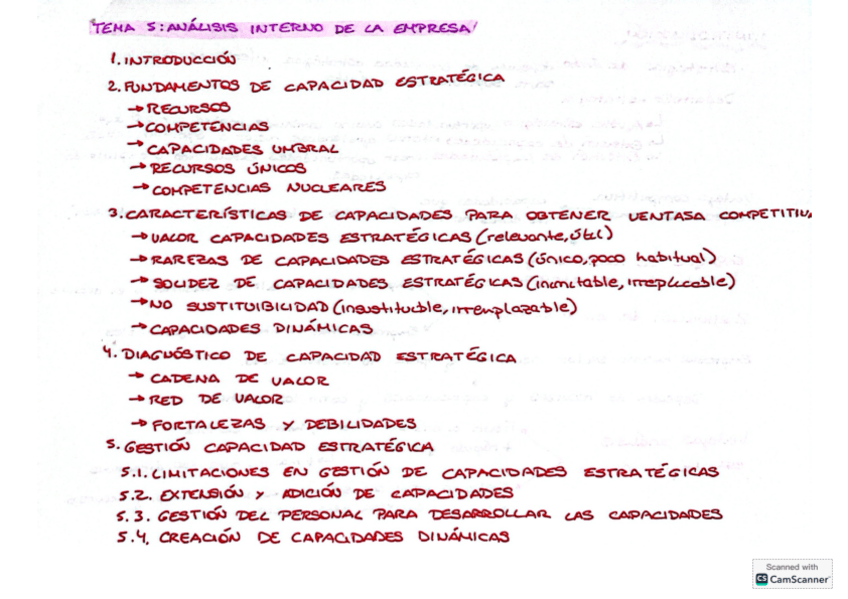 TEMA 5: ANÁLISIS INTERNO DE LA EMPRESA
1. INTRODUCCIÓN
2. FUNDAMENTOS DE CAPACIDAD ESTRATÉGICA
→ RECURSOS
→ COMPETENCIAS
→ CAPACIDADES UMBRAL
→ RECURSOS ÚNICOS
→ COMPETENCIAS NUCLEARES
3. CARACTERÍSTICAS DE CAPACIDADES PARA OBTENER VENTAJA COMPETITIV
→ VALOR CAPACIDADES ESTRATÉGICAS (relevante, útil)
→ RAREZAS DE CAPACIDADES ESTRATÉGICAS (único, poco habitual)
→ SOLIDEZ DE CAPACIDADES ESTRATÉGICAS (inimitable, irreplicable)
→ NO SUSTITUIBILIDAD (insustituible, irremplazable)
→ CAPACIDADES DINÁMICAS
4. DIAGNÓSTICO DE CAPACIDAD ESTRATÉGICA
→ CADENA DE VALOR
→ RED DE VALOR
→ FORTALEZAS Y DEBILIDADES
5. GESTIÓN CAPACIDAD ESTRATÉGICA
5.1. LIMITACIONES EN GESTIÓN DE CAPACIDADES ESTRATÉGICAS
5.2. EXTENSIÓN Y ADICIÓN DE CAPACIDADES
5.3. GESTIÓN DEL PERSONAL PARA DESARROLLAR LAS CAPACIDADES
5.4. CREACIÓN DE CAPACIDADES DINÁMICAS
Scanned with
CS CamScanner